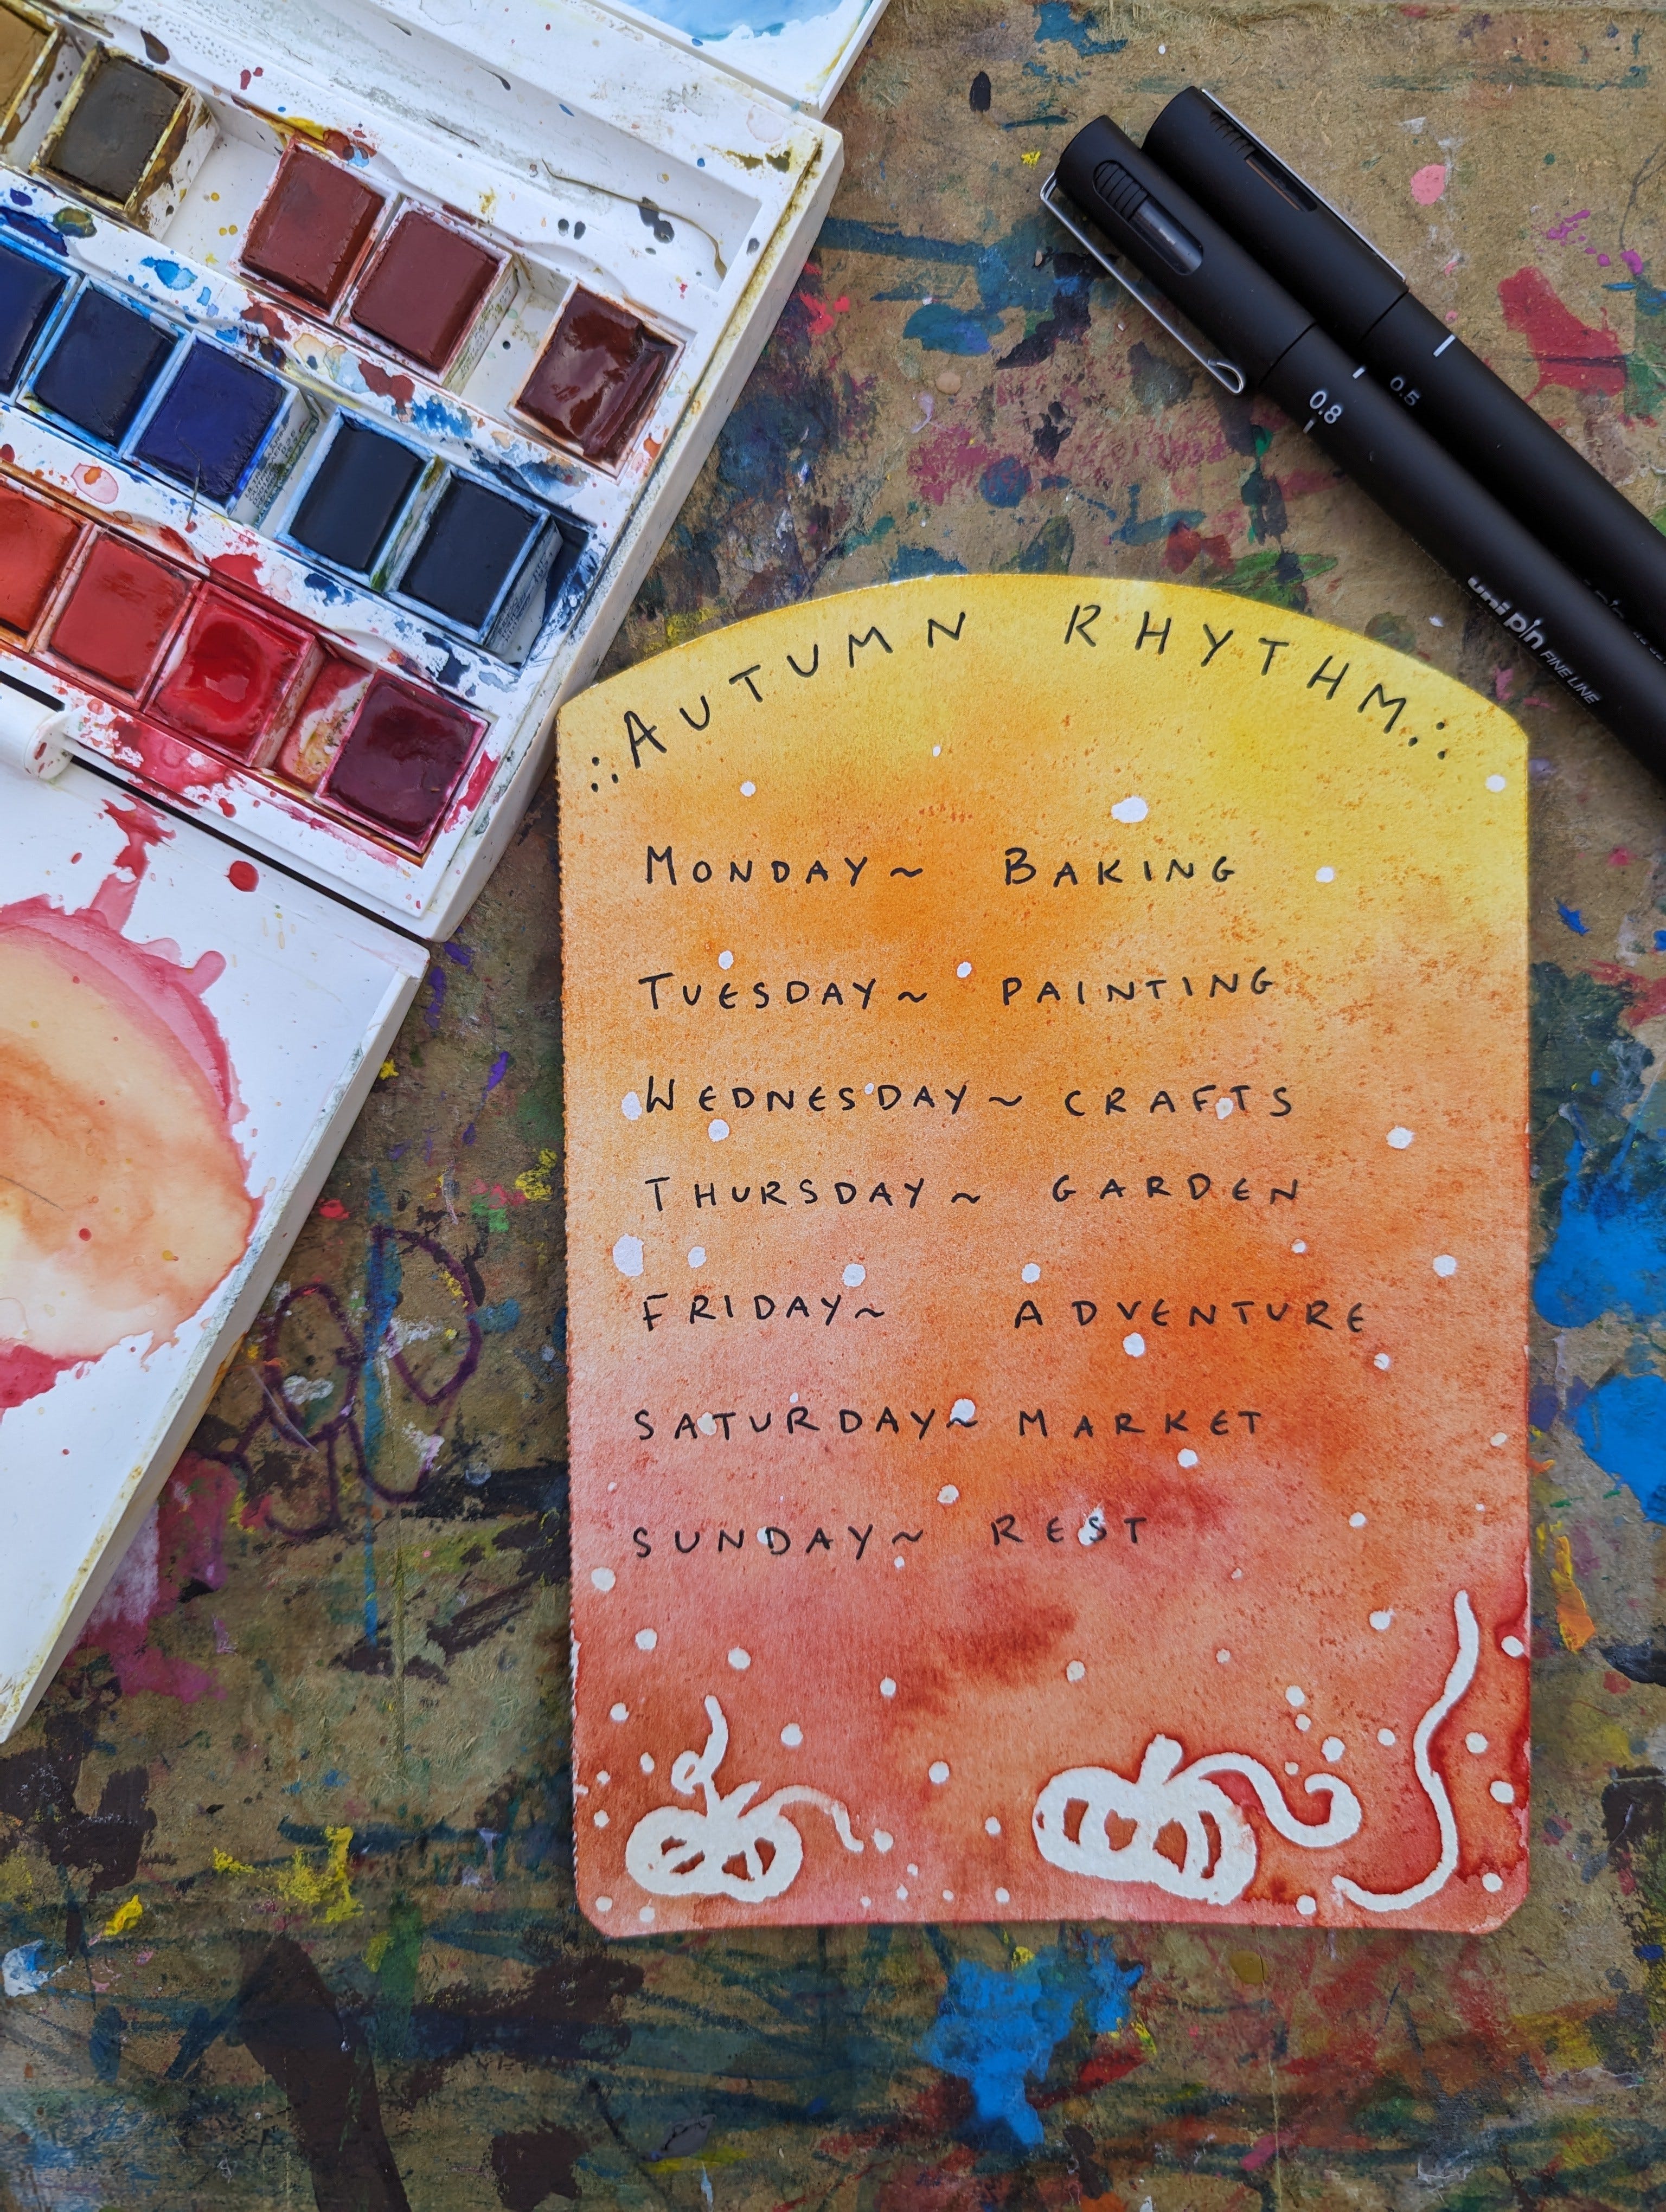 0.5
0.8
uni pin FINE LINE
.:AUTUMN RHYTHM:.
MONDAY~ BAKING
TUESDAY~ PAINTING
WEDNESDAY~ CRAFTS
THURSDAY~ GARDEN
FRIDAY~ ADVENTURE
SATURDAY~ MARKET
SUNDAY~ REST